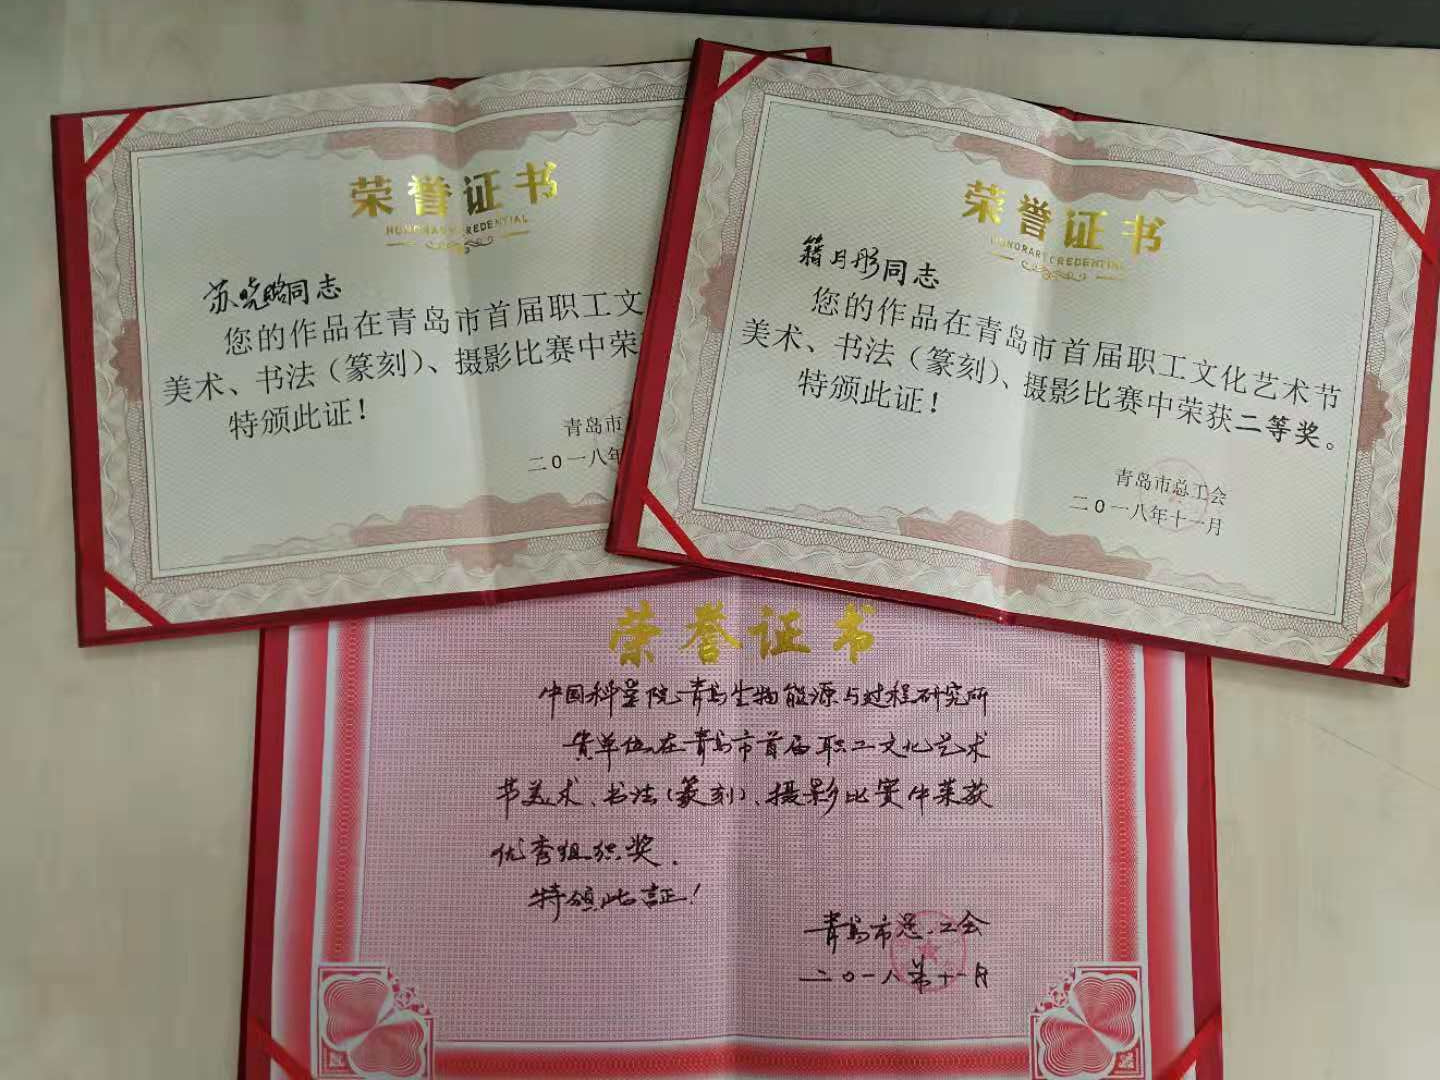 荣誉证书
HONORARY CREDENTIAL
苏晓鹏同志
您的作品在青岛市首届职工文
美术、书法（篆刻）、摄影比赛中荣
特颁此证！
青岛市
二０一八年
荣誉证书
HONORARY CREDENTIAL
籍月彤同志
您的作品在青岛市首届职工文化艺术节
美术、书法（篆刻）、摄影比赛中荣获二等奖。
特颁此证！
青岛市总工会
二０一八年十一月
荣誉证书
中国科学院青岛生物能源与过程研究所
贵单位在青岛市首届职工文化艺术
节美术、书法（篆刻）、摄影比赛中荣获
优秀组织奖.
特颁此证！
青岛市总工会
二０一八年十一月